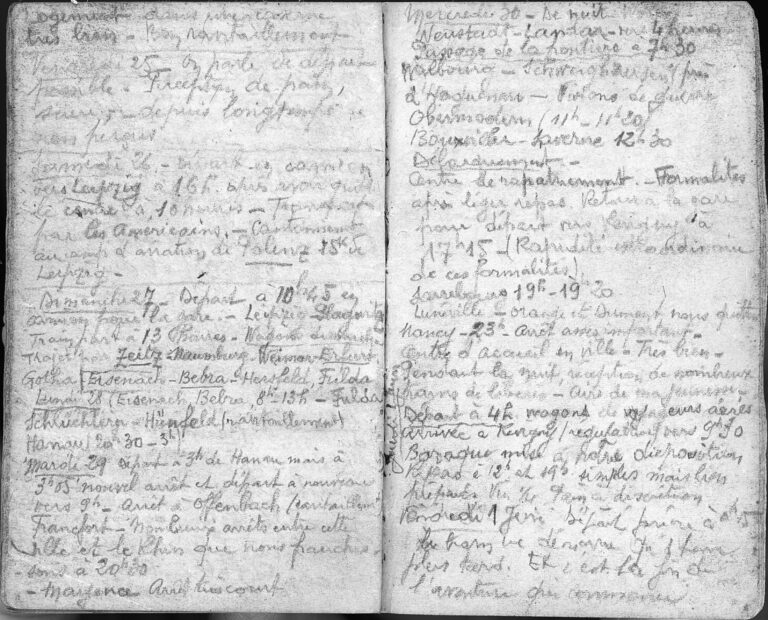 Logement dans une caserne
très bien - Bon ravitaillement
Vendredi 25 - On parle de départ
possible - Perception de pain,
sucre, - depuis longtemps
non perçus
Samedi 26 - Départ en camion
vers Leipzig à 16h. après avoir quitté
le centre à 10 heures - Transport
par les Américains. - Cantonnement
au camp d'aviation de Polenz 25k de
Leipzig -
Dimanche 27 - Départ à 10h45 en
camion pour la gare. - Leipzig -
Train part à 13 heures - Wagons
Trajet par Zeitz - Naumburg - Weimar - Erfurt
Gotha - Eisenach - Bebra - Hersfeld, Fulda
Lundi 28 (Eisenach, Bebra, 8h - 13h - Fulda
Schlüchtern - Hünfeld (ravitaillement)
Hanau (20h30 - 3h)
Mardi 29 Départ à 3h de Hanau mais à
3h05 nouvel arrêt et départ à nouveau
vers 9h - Arrêt à Offenbach (ravitaillement
Francfort - Nombreux arrêts entre cette
ville et le Rhin que nous franchis-
sons à 20h30
- Mayence Arrêt très court
Mercredi 30 - De nuit
Neustadt - Landau - vers 4 heures
Passage de la frontière à 7h30
Walbourg - Schweighausen / près
d'Haguenau - Visions de guerre
Obermodern (11h - 11h20)
Bouxwiller - Saverne 12h30
Débarquement -
Centre de rapatriement. - Formalités
après léger repas. Retour à la gare
pour départ vers Revigny à
17h15 - (Rapidité extraordinaire
de ces formalités)
Sarrebourg 19h - 19h20
Lunéville - orange et Dumont nous quittent
Nancy - 23h - Arrêt assez important -
Centre d'accueil en ville - Très bien -
Pendant la nuit, réception de nombreux
trains de
Départ à 4h wagons de voyageurs
arrivée à Revigny (régulation) vers 9h30
Baraque mise à notre disposition
Repas à 12h et 19h simples mais bien
préparés à discrétion
Vendredi 1 Juin Départ prévu à
le train ne démarre
plus tard. Et c'est la fin de
l'aventure qui commence